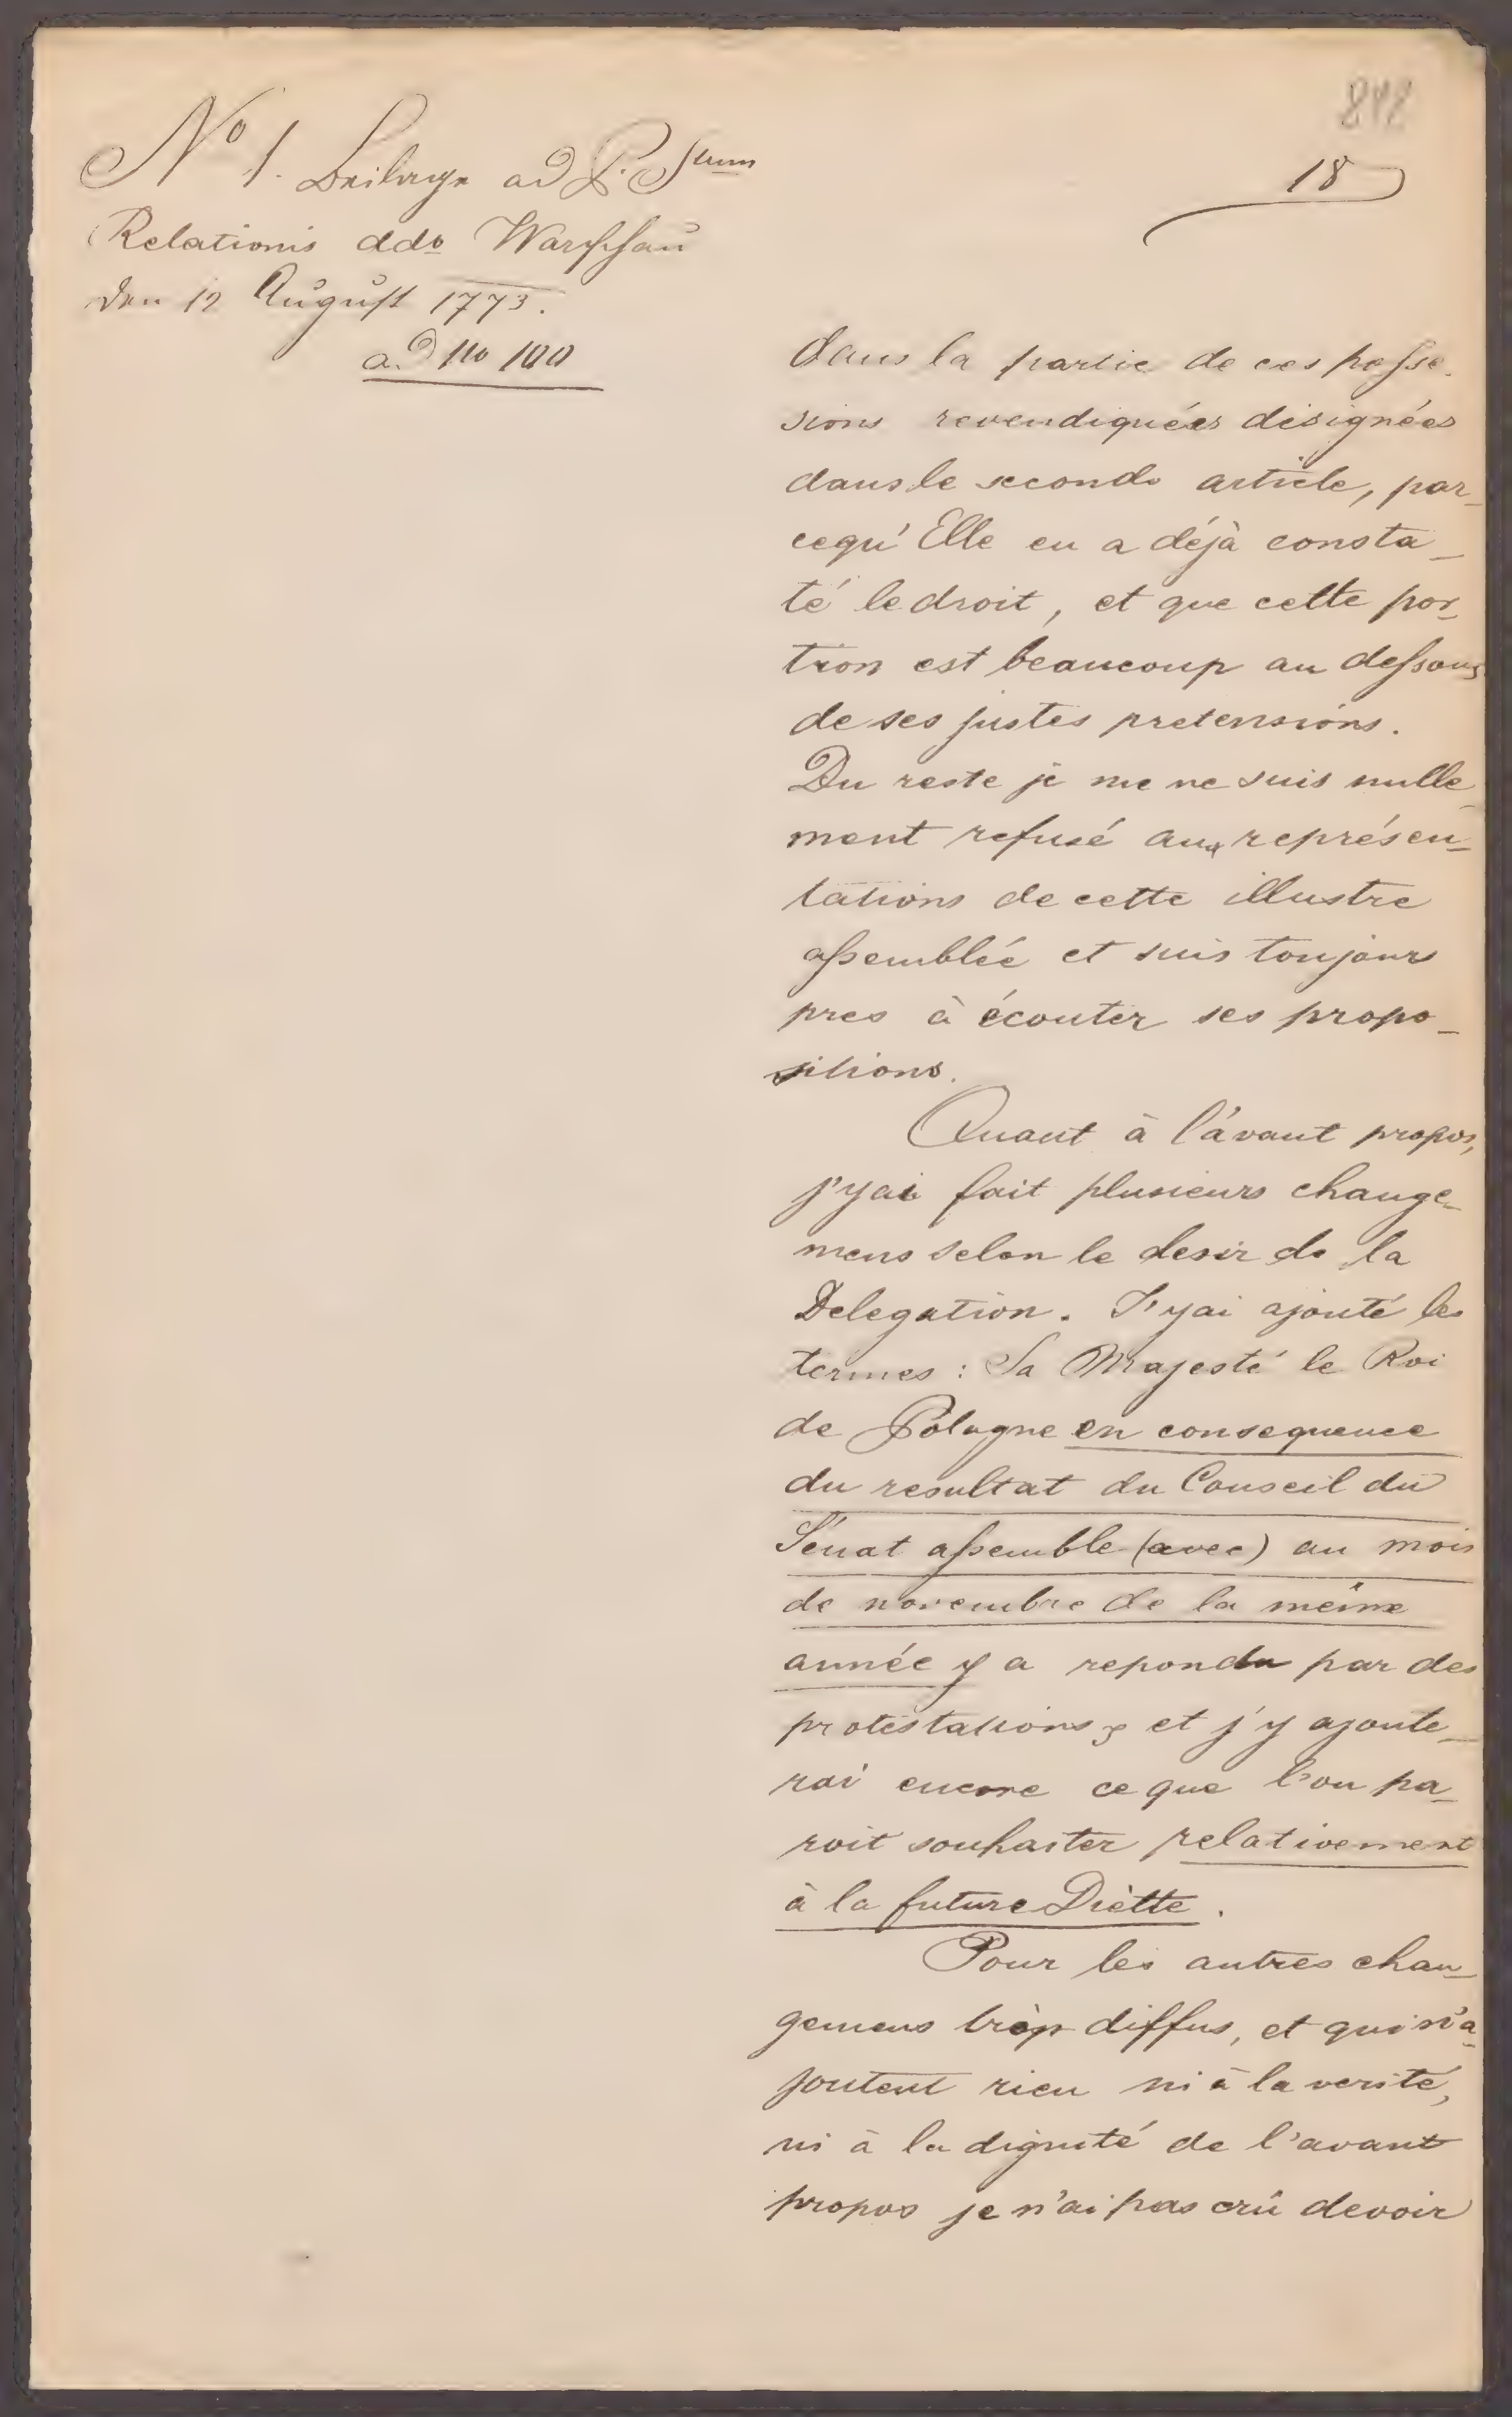 No 1. Beilage ad P. Stum
Relationis ddo Warschau
den 12 August 1773.
ad No 100
18
dans la partie de ces posses-
sions revendiquées désignées
dans le second article, par-
cequ'Elle en a déjà consta-
té le droit, et que cette por-
tion est beaucoup au dessous
de ses justes pretensions.
Du reste je me ne suis nulle-
ment refusé aux représen-
tations de cette illustre
assemblée et suis toujours
pres à écouter ses propo-
sitions.
Quant à l'avant propos,
j'y ai fait plusieurs change-
mens selon le desir de la
Delegation. J'y ai ajouté les
termes : Sa Majesté le Roi
de Pologne en consequence
du resultat du Conseil du
Sénat assemble (avec) au mois
de novembre de la même
année y a repondu par des
protestations, et j'y ajoute-
rai encore ce que l'on pa-
roit souhaiter relativement
à la future Diètte.
Pour les autres chan-
gemens trop diffus, et qui n'a-
joutent rien ni à la verité,
ni à la dignité de l'avant
propos je n'ai pas crû devoir